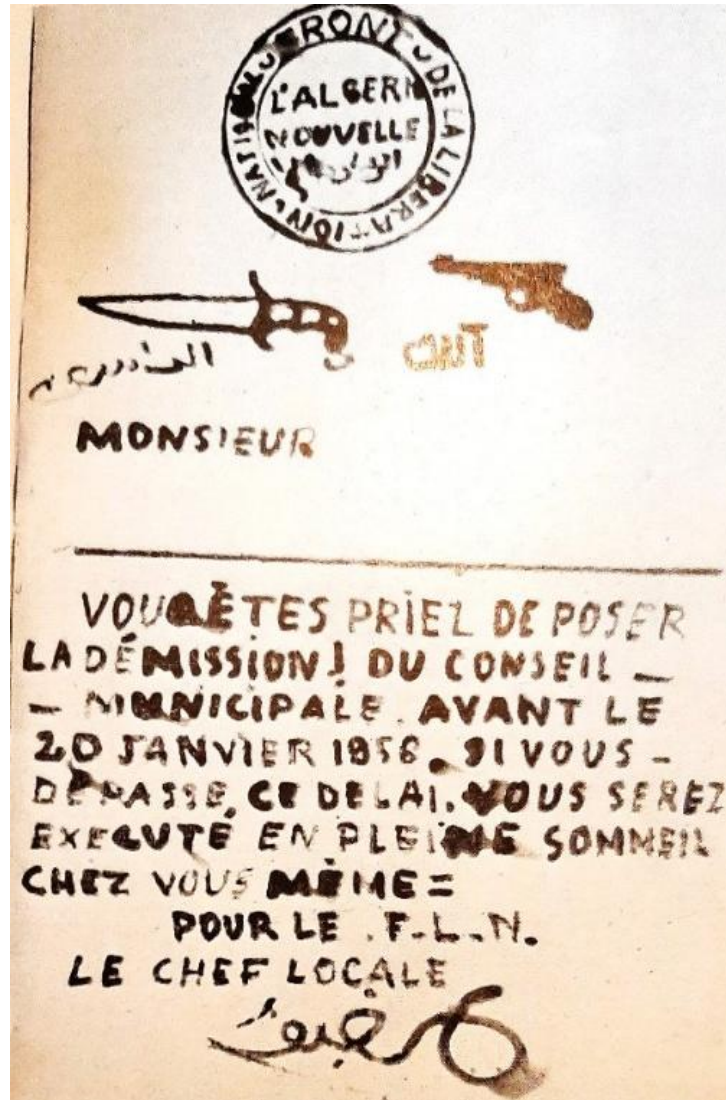 FRONT DE LA LIBERATION NATIONAL
L'ALGERIE
NOUVELLE
CHUT
MONSIEUR
VOUS ÊTES PRIEZ DE POSER
LA DÉMISSION! DU CONSEIL —
— MUNICIPALE. AVANT LE
20 JANVIER 1956. SI VOUS -
DÉPASSE, CE DELAI. VOUS SEREZ
EXECUTÉ EN PLEINE SOMMEIL
CHEZ VOUS MÊME =
POUR LE .F.L.N.
LE CHEF LOCALE